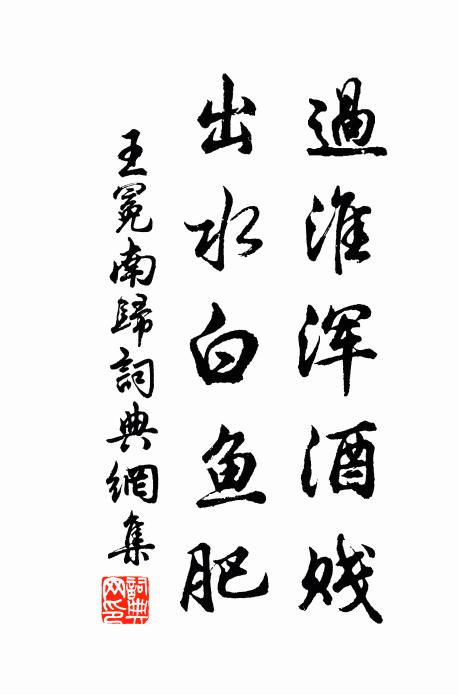 過淮浑酒贱
出水白鱼肥
王冕南歸詞典網集
詞典网印